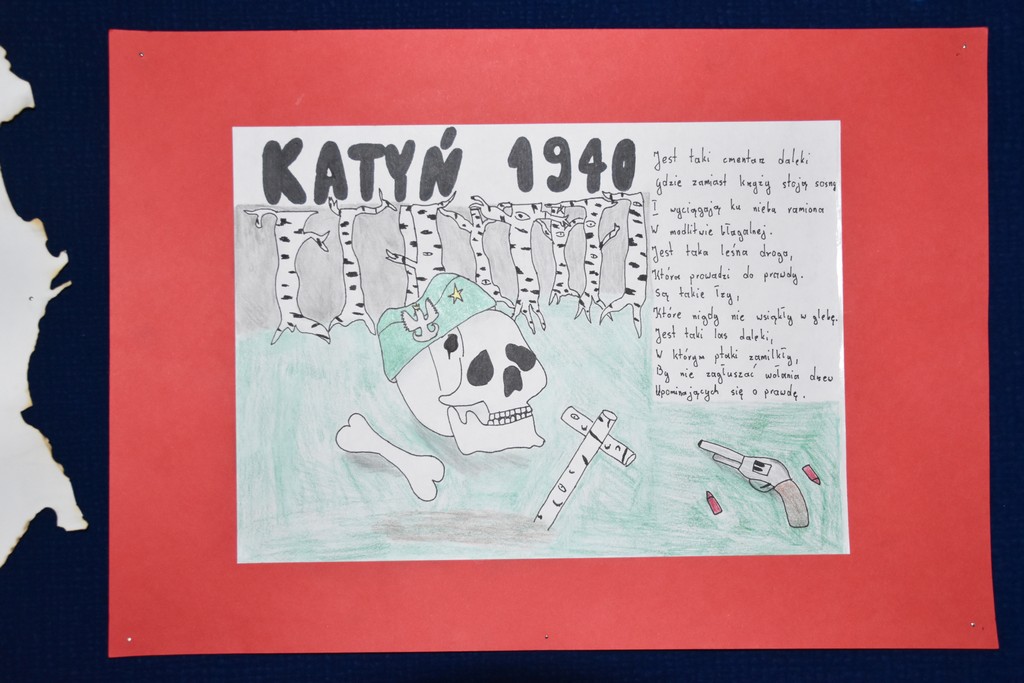 KATYŃ 1940
Jest taki cmentarz daleki
gdzie zamiast krzyży stoją sosny
I wyciągają ku niebu ramiona
W modlitwie błagalnej.
Jest taka leśna droga,
Która prowadzi do prawdy.
Są takie łzy,
Które nigdy nie wsiąkły w glebę.
Jest taki las daleki,
W którym ptaki zamilkły,
By nie zagłuszać wołania drzew
Upominających się o prawdę.